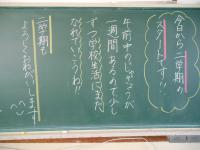 今日から二学期の
スタートです!!
午前中のじゅぎょうが
一週間あるので少し
ずつ学校生活にまた
なれていこうね!!
二学期も
よろしくおねがいします